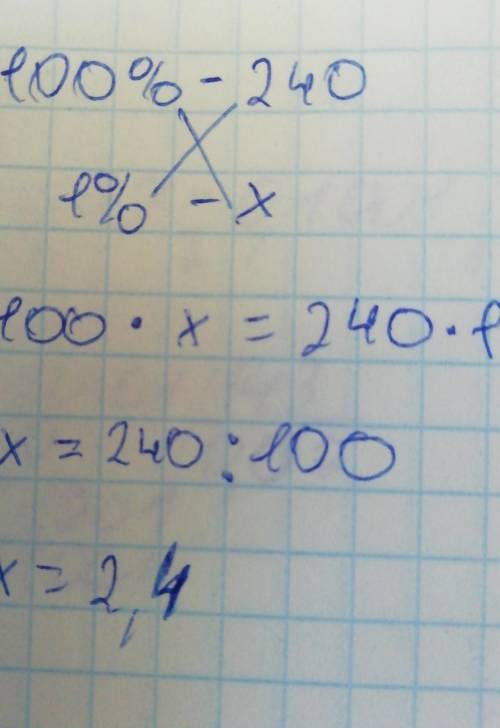 100% - 240
1% - x
100 · x = 240 · 1
x = 240 : 100
x = 2,4